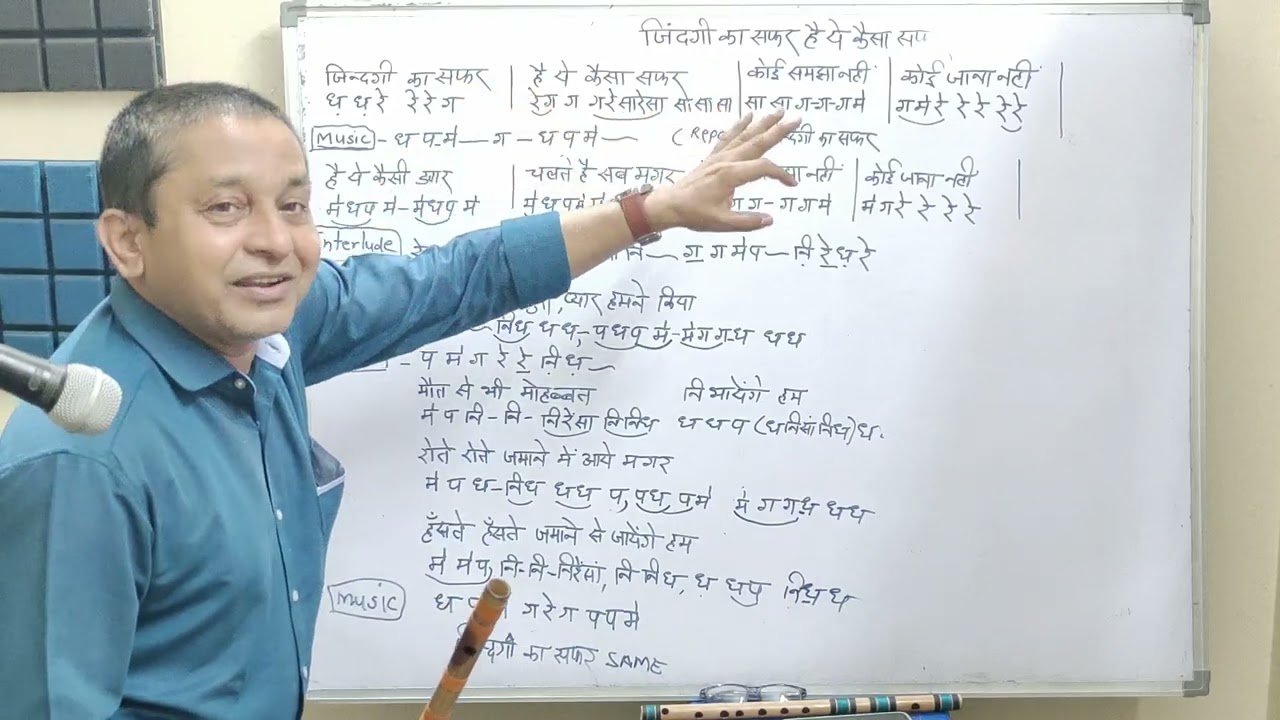 ज़िंदगी का सफर है ये कैसा सफ
जिन्दगी का सफर | है ये कैसा सफर | कोई समझा नहीं | कोई जाना नहीं |
ध़ ध़ रे रे रे ग | रेग ग गरेसारेसा सासासा | सा सा ग-ग-गमे | गमेरे रे रे रेरे
Music - ध प मे — ग - ध प मे — (Repe दगी का सफर
है ये कैसी डगर | चलते है सब मगर नहीं | कोई जाना नहीं |
मेधप मे - मेधप मे | ग - ग गमे | मे ग रे रे रे रे
Interlude रे नि — ग ग मेप — नि़ रे़ ध़ रे
प्यार हमने किया
निध ध ध, - पधप मे - मेगग-ध धध
- प मे ग रे रे नि़ ध़ —
मौत से भी मोहब्बत निभायेंगे हम
मे प नि - नि - निरेंसा निनिध ध ध प (धनिसांनिध)ध.
रोते रोते जमाने में आये मगर
मे प ध - निध धध प, पध, पमे मे ग गध धध
हँसते हँसते जमाने से जायेंगे हम
मे मेप, नि-नि-निरेंसां, नि निध, ध धप निधध
Music ध ग रे ग प प मे
का सफर SAME